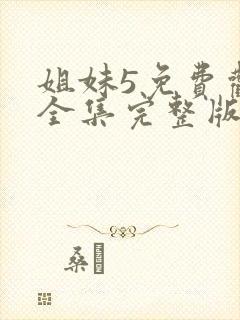 姐妹5免費
全集完整版
桑